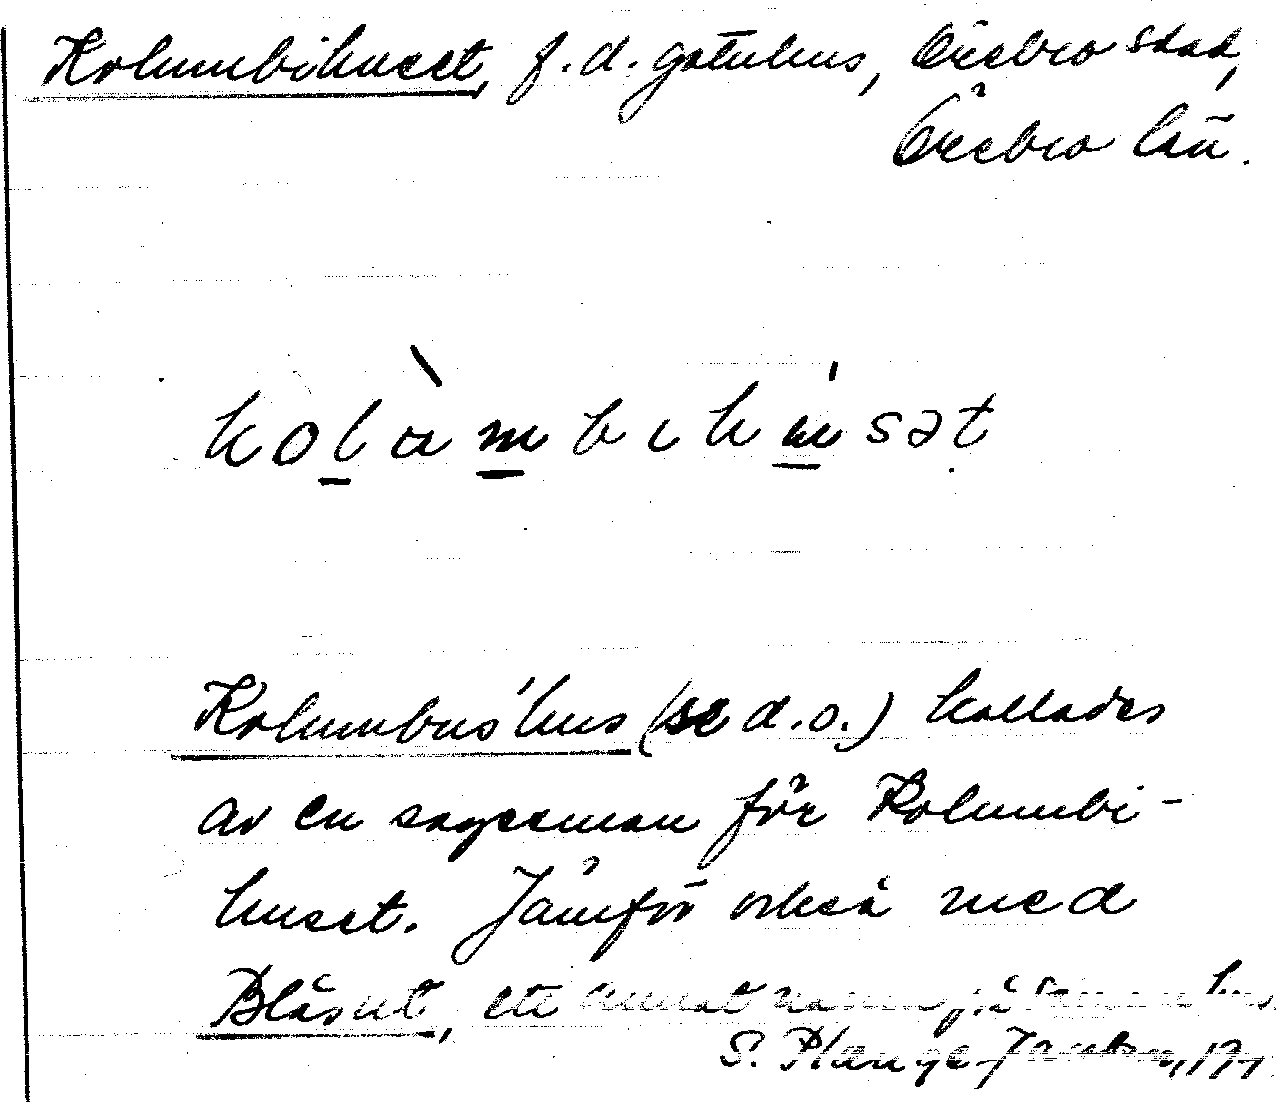 Kolumbihuset, f.d. gatuhus, Örebro stad,
Örebro län.
kolàmbihúsət
Kolumbus' hus (se d.o.) kallades
av en sagesman för Kolumbi-
huset. Jämför också med
Blåsut, ett annat namn på samma hus.
S. Plænge